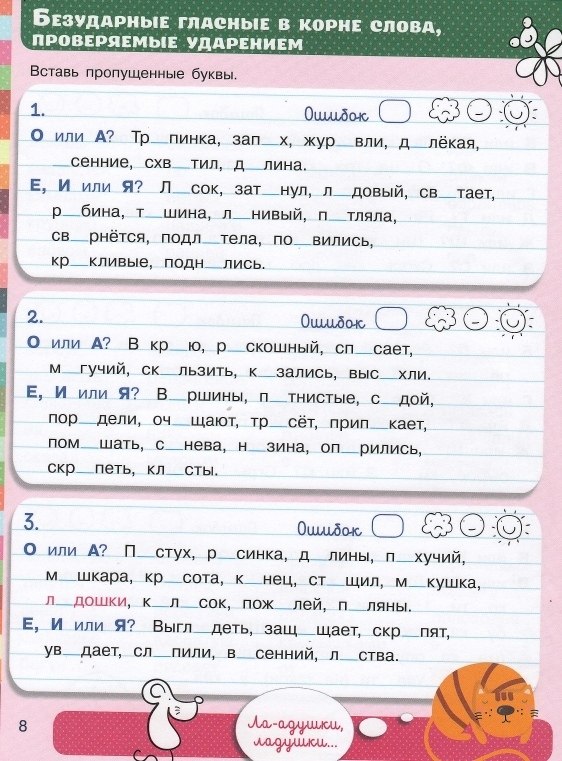 Безударные гласные в корне слова,
проверяемые ударением
Вставь пропущенные буквы.
1.
Ошибок
О или А? Тр_пинка, зап_х, жур_вли, д_лёкая,
_сенние, схв_тил, д_лина.
Е, И или Я? Л_сок, зат_нул, л_довый, св_тает,
р_бина, т_шина, л_нивый, п_тляла,
св_рнётся, подл_тела, по_вились,
кр_кливые, подн_лись.
2.
Ошибок
О или А? В кр_ю, р_скошный, сп_сает,
м_гучий, ск_льзить, к_зались, выс_хли.
Е, И или Я? В_ршины, п_тнистые, с_дой,
пор_дели, оч_щают, тр_сёт, прип_кает,
пом_шать, с_нева, н_зина, оп_рились,
скр_петь, кл_сты.
3.
Ошибок
О или А? П_стух, р_синка, д_лины, п_хучий,
м_шкара, кр_сота, к_нец, ст_щил, м_кушка,
л_дошки, к_л_сок, пож_лей, п_ляны.
Е, И или Я? Выгл_деть, защ_щает, скр_пят,
ув_дает, сл_пили, в_сенний, л_ства.
8
Ла-адушки,
ладушки...